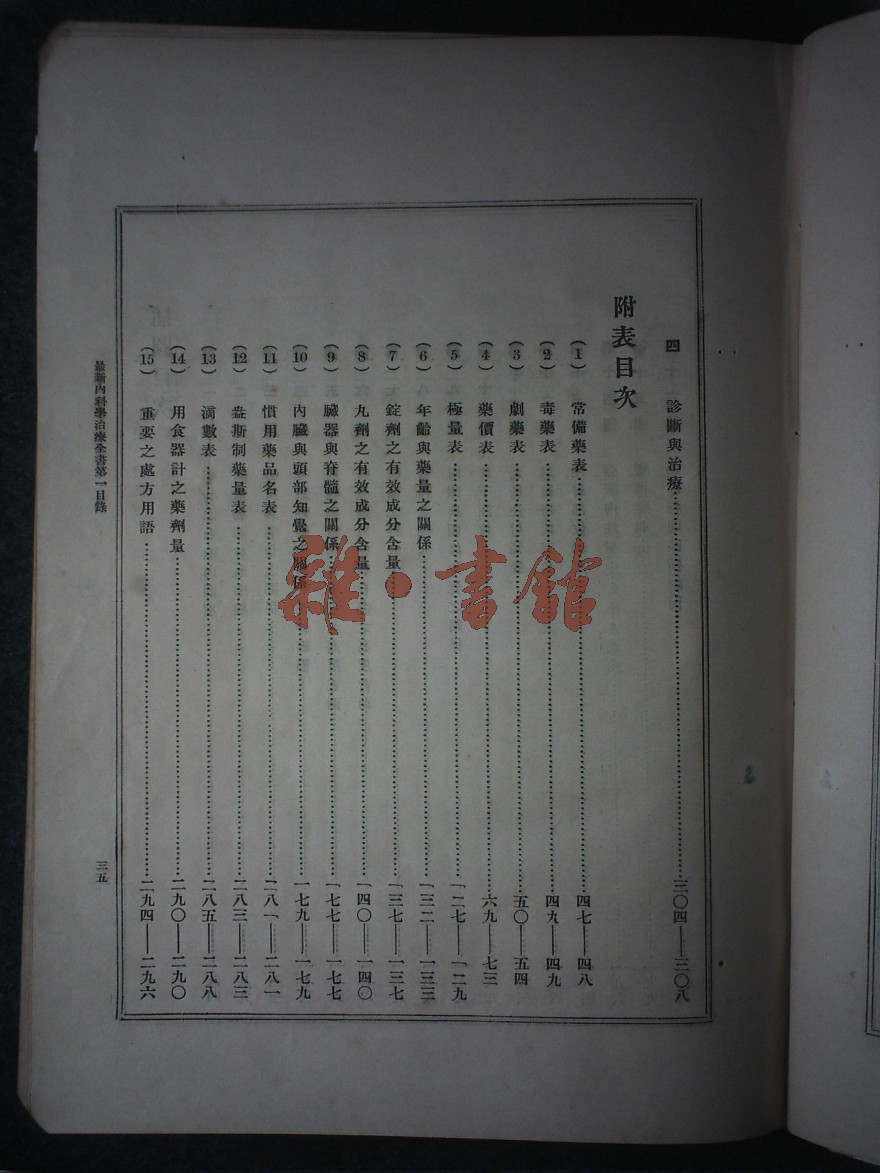 四 診斷與治療⋯⋯三〇四——三〇八
附表目次
(1) 常備藥表⋯⋯四七——四八
(2) 毒藥表⋯⋯四九——四九
(3) 劇藥表⋯⋯五〇——五四
(4) 藥價表⋯⋯六九——七三
(5) 極量表⋯⋯一二七——一二九
(6) 年齡與藥量之關係⋯⋯一三二——一三三
(7) 錠劑之有效成分含量⋯⋯一三七——一三七
(8) 丸劑之有效成分含量⋯⋯一四〇——一四〇
(9) 臟器與脊髓之關係⋯⋯一七七——一七七
(10) 內臟與頭部知覺之關係⋯⋯一七九——一七九
(11) 慣用藥品名表⋯⋯二八一——二八一
(12) 盎斯制藥量表⋯⋯二八三——二八三
(13) 滴數表⋯⋯二八五——二八八
(14) 用食器計之藥劑量⋯⋯二九〇——二九〇
(15) 重要之處方用語⋯⋯二九四——二九六
最新內科學治療全書第一目錄
三五
雜·書館